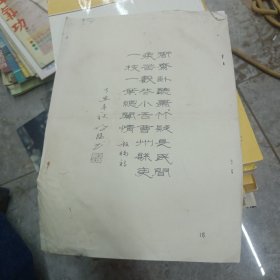 衙齋卧聽蕭竹疑是民間
疾苦聲些小吾曹州縣吏
一枝一葉總關情 板橋詩
18